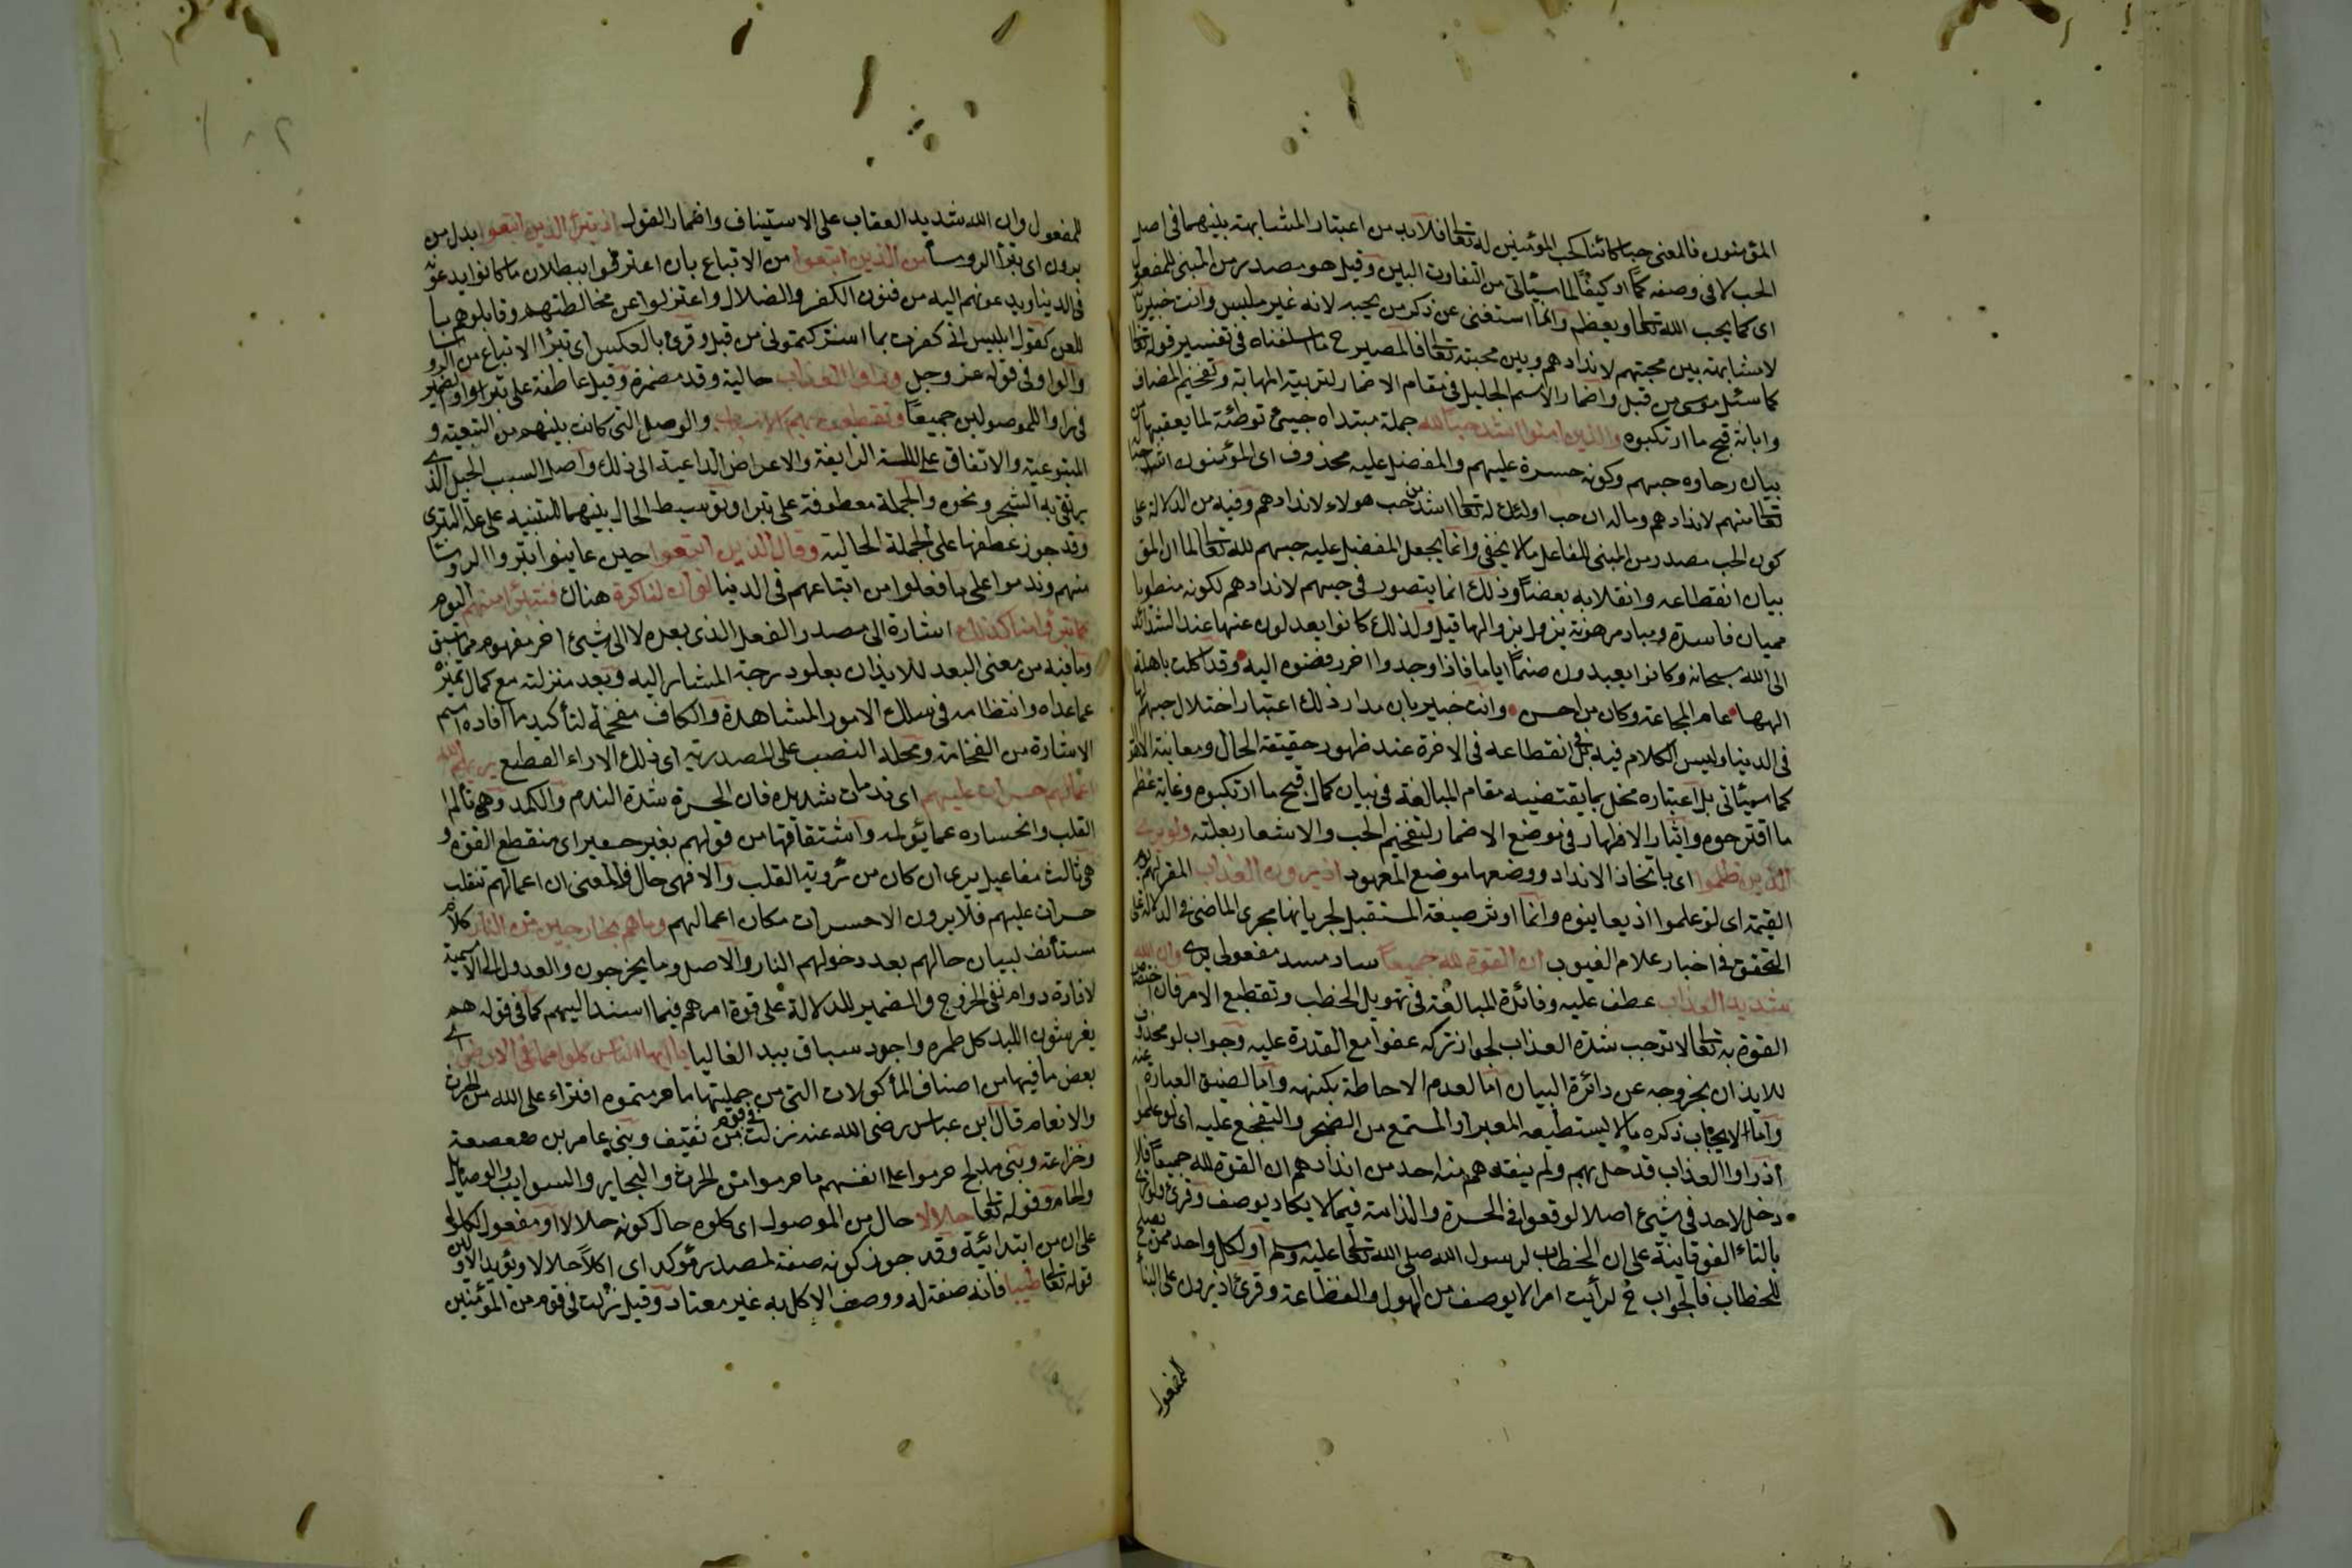 المؤمنون فالمعنى حبا كائنا كحب المؤمنين له تعا فلابد من اعتبار المشابهة بينهما في اصل
الحب لا في وصفه كمًّا او كيفًا لما سيئاتى من التفاوت البين وقيل هو مصدر من المبنى للمفعول
اى كما يحب الله تعا ويعظم وانما استغنى عن ذكر من يحبه لانه غير ملبس وانت خبير بانه
لا مشابهة بين محبتهم لاندادهم وبين محبته تعا فالمصير ح ما اسلفناه في تفسير قوله تعا
كما سئل موسى من قبل واضمار الاسم الجليل في مقام الاضمار لتربية المهابة وتفخيم المضاف
وابانة قبح ما ارتكبوه والذين امنوا اشد حبا لله جملة مبتداه جيئ توطئة لما يعقبها من
بيان رخاوه حبهم وكونه حسرة عليهم والمفضل عليه محذوف اى المؤمنون اشد حبا له
تعا منهم لاندادهم وماله ان حب اولئك له تعا اشد من حب هولاء لاندادهم وفيه من الدلالة على
كون الحب مصدر من المبنى للفاعل مالا يخفى وانما يجعل المفضل عليه حبهم لله تعالى لما ان المق
بيان انقطاعه وانقلابه بعضا وذلك انما يتصور في حبهم لاندادهم لكونه منطوبا
ممبان فاسدة ومباد مرهونة يزول بزوالها قيل ولذلك كانوا يعدلون عنها عند الشدائد
الى الله سبحانه وكانوا يعبدون صنمًا اياما فاذا وجدوا اخر رفضوه اليه وقد اكلت باهلة
الهها عام المجاعة وكان من احسن وانت خبير بان مدار ذلك اعتبار اختلال حبهم لها
في الدنيا وليس الكلام فيه بل في انقطاعه في الاخرة عند ظهور حقيقة الحال ومعاينة الاهو
كما سيئاتى بل اعتباره مخل بما يقتضيه مقام المبالغة في بيان كمال قبح ما ارتكبوه وغاية عظم
ما اقترحوه وايثار الاظهار في موضع الاضمار لتفخيم الحب والاشعار بعلته ولو يرى
الذين ظلموا اى باتخاذ الانداد ووضعها موضع المعهود اذ يرون العذاب المقر لهم يوم
القيمة اى لو علموا اذ يعاينوه وانما اوثر صيغة المستقبل لجريانها مجرى الماضى في الدلالة على
التحقق في اخبار علام الغيوب ان القوة لله جميعا ساد مسد مفعولى يرى وان الله
شديد العذاب عطف عليه وفائدة المبالغة في تهويل الخطب وتفظيع الامر فان اختصاص
القوة به تعا لا توجب شدة العذاب لجواز تركه عفوا مع القدرة عليه وجواب لو محذوف
للايذان بخروجه عن دائرة البيان اما لعدم الاحاطة بكنهه واما لضيق العبارة عنه
واما لايجاب ذكره مالا يستطيعه المعبر او المستمع من الضجر والتفجع عليه اى لو علموا
اذ راوا العذاب قد حل بهم ولم ينقذهم منه احد من اندادهم ان القوة لله جميعا فلا
دخل لاحد في شيئ اصلا لوقعوا في الحسرة والندامة فيما لا يكاد يوصف وقرئ ولو ترى
بالتاء الفوقانية على ان الخطاب لرسول الله صلى الله تعا عليه وسلم او لكل واحد ممن يصلح
للخطاب فالجواب ح لرأيت امرا لا يوصف من الهول والفظاعة وقرئ اذ يرون على البناء
للمفعول
للمفعول وان الله شديد العقاب على الاستيناف واضمار القول اذ تبرأ الذين اتبعوا بدل من
يرون اى تبرأ الروسا من الذين اتبعوا من الاتباع بان اعترفوا ببطلان ما كانوا يدعونه
في الدنيا ويدعونهم اليه من فنون الكفر والضلال واعتزلوا عن مخالطتهم وقابلوهم با
للعن كقول ابليس انى كفرت بما اشتركتمونى من قبل وقرئ بالعكس اى تبرأ الاتباع من الروسا
والواو في قوله عز وجل وراوا العذاب حالية وقد مضمرة وقيل عاطفة على تبرأ والضمير
في راوا للموصولين جميعا وتقطعت بهم الاسباب والوصل التى كانت بينهم من التبعية و
المتبوعية والاتفاق على الملة الزايغة والاعراض الداعية الى ذلك واصل السبب الحبل الذى
يرتقى به الشجر ونحوه والجملة معطوفة على تبرأ وتوسيط الحال بينهما للتنبيه على علة التبرى
وقد جوز عطفها على الجملة الحالية وقال الذين اتبعوا حين عاينوا تبروا الروسا
منهم وندموا على ما فعلوا من اتباعهم في الدنيا لو ان لنا كرة هناك فنتبرأ منهم اليوم
كما تبرؤا منا كذلك اشارة الى مصدر الفعل الذى بعده لا الى شيئ اخر مفهوم مما سبق
وما فيه من معنى البعد للايذان بعلو درجة المشار اليه وبعد منزلته مع كمال تميزه
عما عداه وانتظامه في سلك الامور المشاهدة والكاف مفخمة لتأكيد ما افاده اسم
الاشارة من الفخامة ومحله النصب على المصدرية اى ذلك الاراء الفظيع يريهم الله
اعمالهم حسرات عليهم اى ندمات شديدة فان الحسرة شدة الندم والكمد وهى تألم
القلب وانحساره عما يؤلمه واشتقاقها من قولهم بعير حسير اى منقطع القوة و
هى ثالث مفاعيل يرى ان كان من رؤية القلب والا فهى حال والمعنى ان اعمالهم تنقلب
حسرات عليهم فلا يرون الا حسرات مكان اعمالهم وما هم بخارجين من النار كلام
مستأنف لبيان حالهم بعد دخولهم النار والاصل وما يخرجون والعدول الى الاسمية
لافادة دوام نفى الخروج والضمير للدلالة على قوة امرهم فيما اسند اليهم كما في قوله هم
يفرشون اللبد كل طمره واجود سباق يبد الغاليا يا ايها الناس كلوا مما في الارض اى
بعض ما فيها من اصناف المأكولات التى من جملتها ما حرمتموه افتراء على الله من الحرث
والانعام قال ابن عباس رضى الله عنه نزلت في قوم من ثقيف وبنى عامر بن صعصعة
وخزاعة وبنى مدلج حرموا على انفسهم ما حرموا من الحرث والبحاير والسوايب والوصايل
والحام وقوله تعا حلالا حال من الموصول اى كلوه حال كونه حلالا او مفعول لكلوا
على ان من ابتدائية وقد جوز كونه صفة لمصدر مؤكد اى اكلا حلالا ويؤيد الاولين
قوله تعا طيبا فانه صفة له ووصف الاكل به غير معتاد وقيل نزلت في قوم من المؤمنين